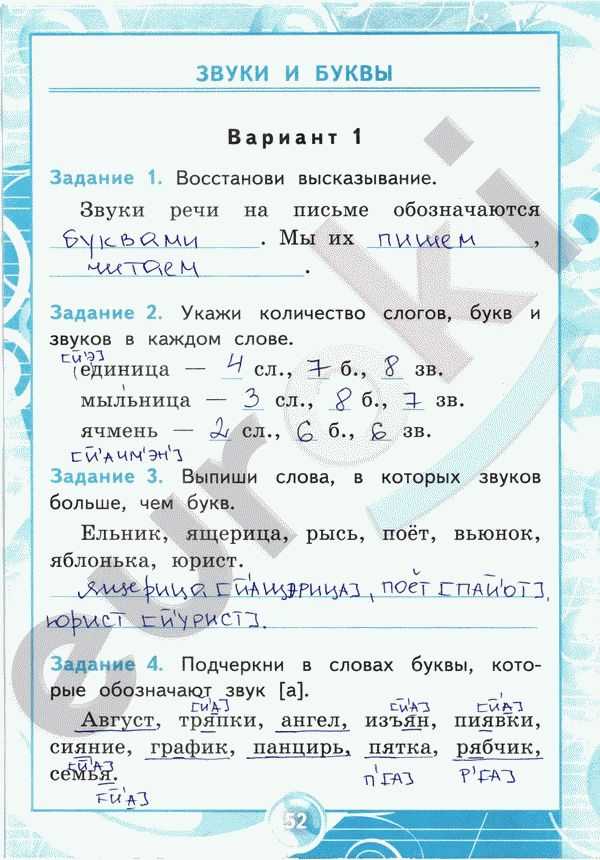 ЗВУКИ И БУКВЫ
Вариант 1
Задание 1. Восстанови высказывание.
Звуки речи на письме обозначаются
буквами. Мы их пишем,
читаем.
Задание 2. Укажи количество слогов, букв и
звуков в каждом слове.
[й'э]
единица — 4 сл., 7 б., 8 зв.
мыльница — 3 сл., 8 б., 7 зв.
ячмень — 2 сл., 6 б., 6 зв.
[й'ачм'эн']
Задание 3. Выпиши слова, в которых звуков
больше, чем букв.
Ельник, ящерица, рысь, поёт, вьюнок,
яблонька, юрист.
ящерица [й'ащэрица], поёт [пай'от],
юрист [й'урист].
Задание 4. Подчеркни в словах буквы, кото-
рые обозначают звук [а].
[й'а] [й'а] [й'а]
Август, тряпки, ангел, изъян, пиявки,
сияние, график, панцирь, пятка, рябчик,
[й'а] п'[а] р'[а]
семья.
[й'а]
52
euroki